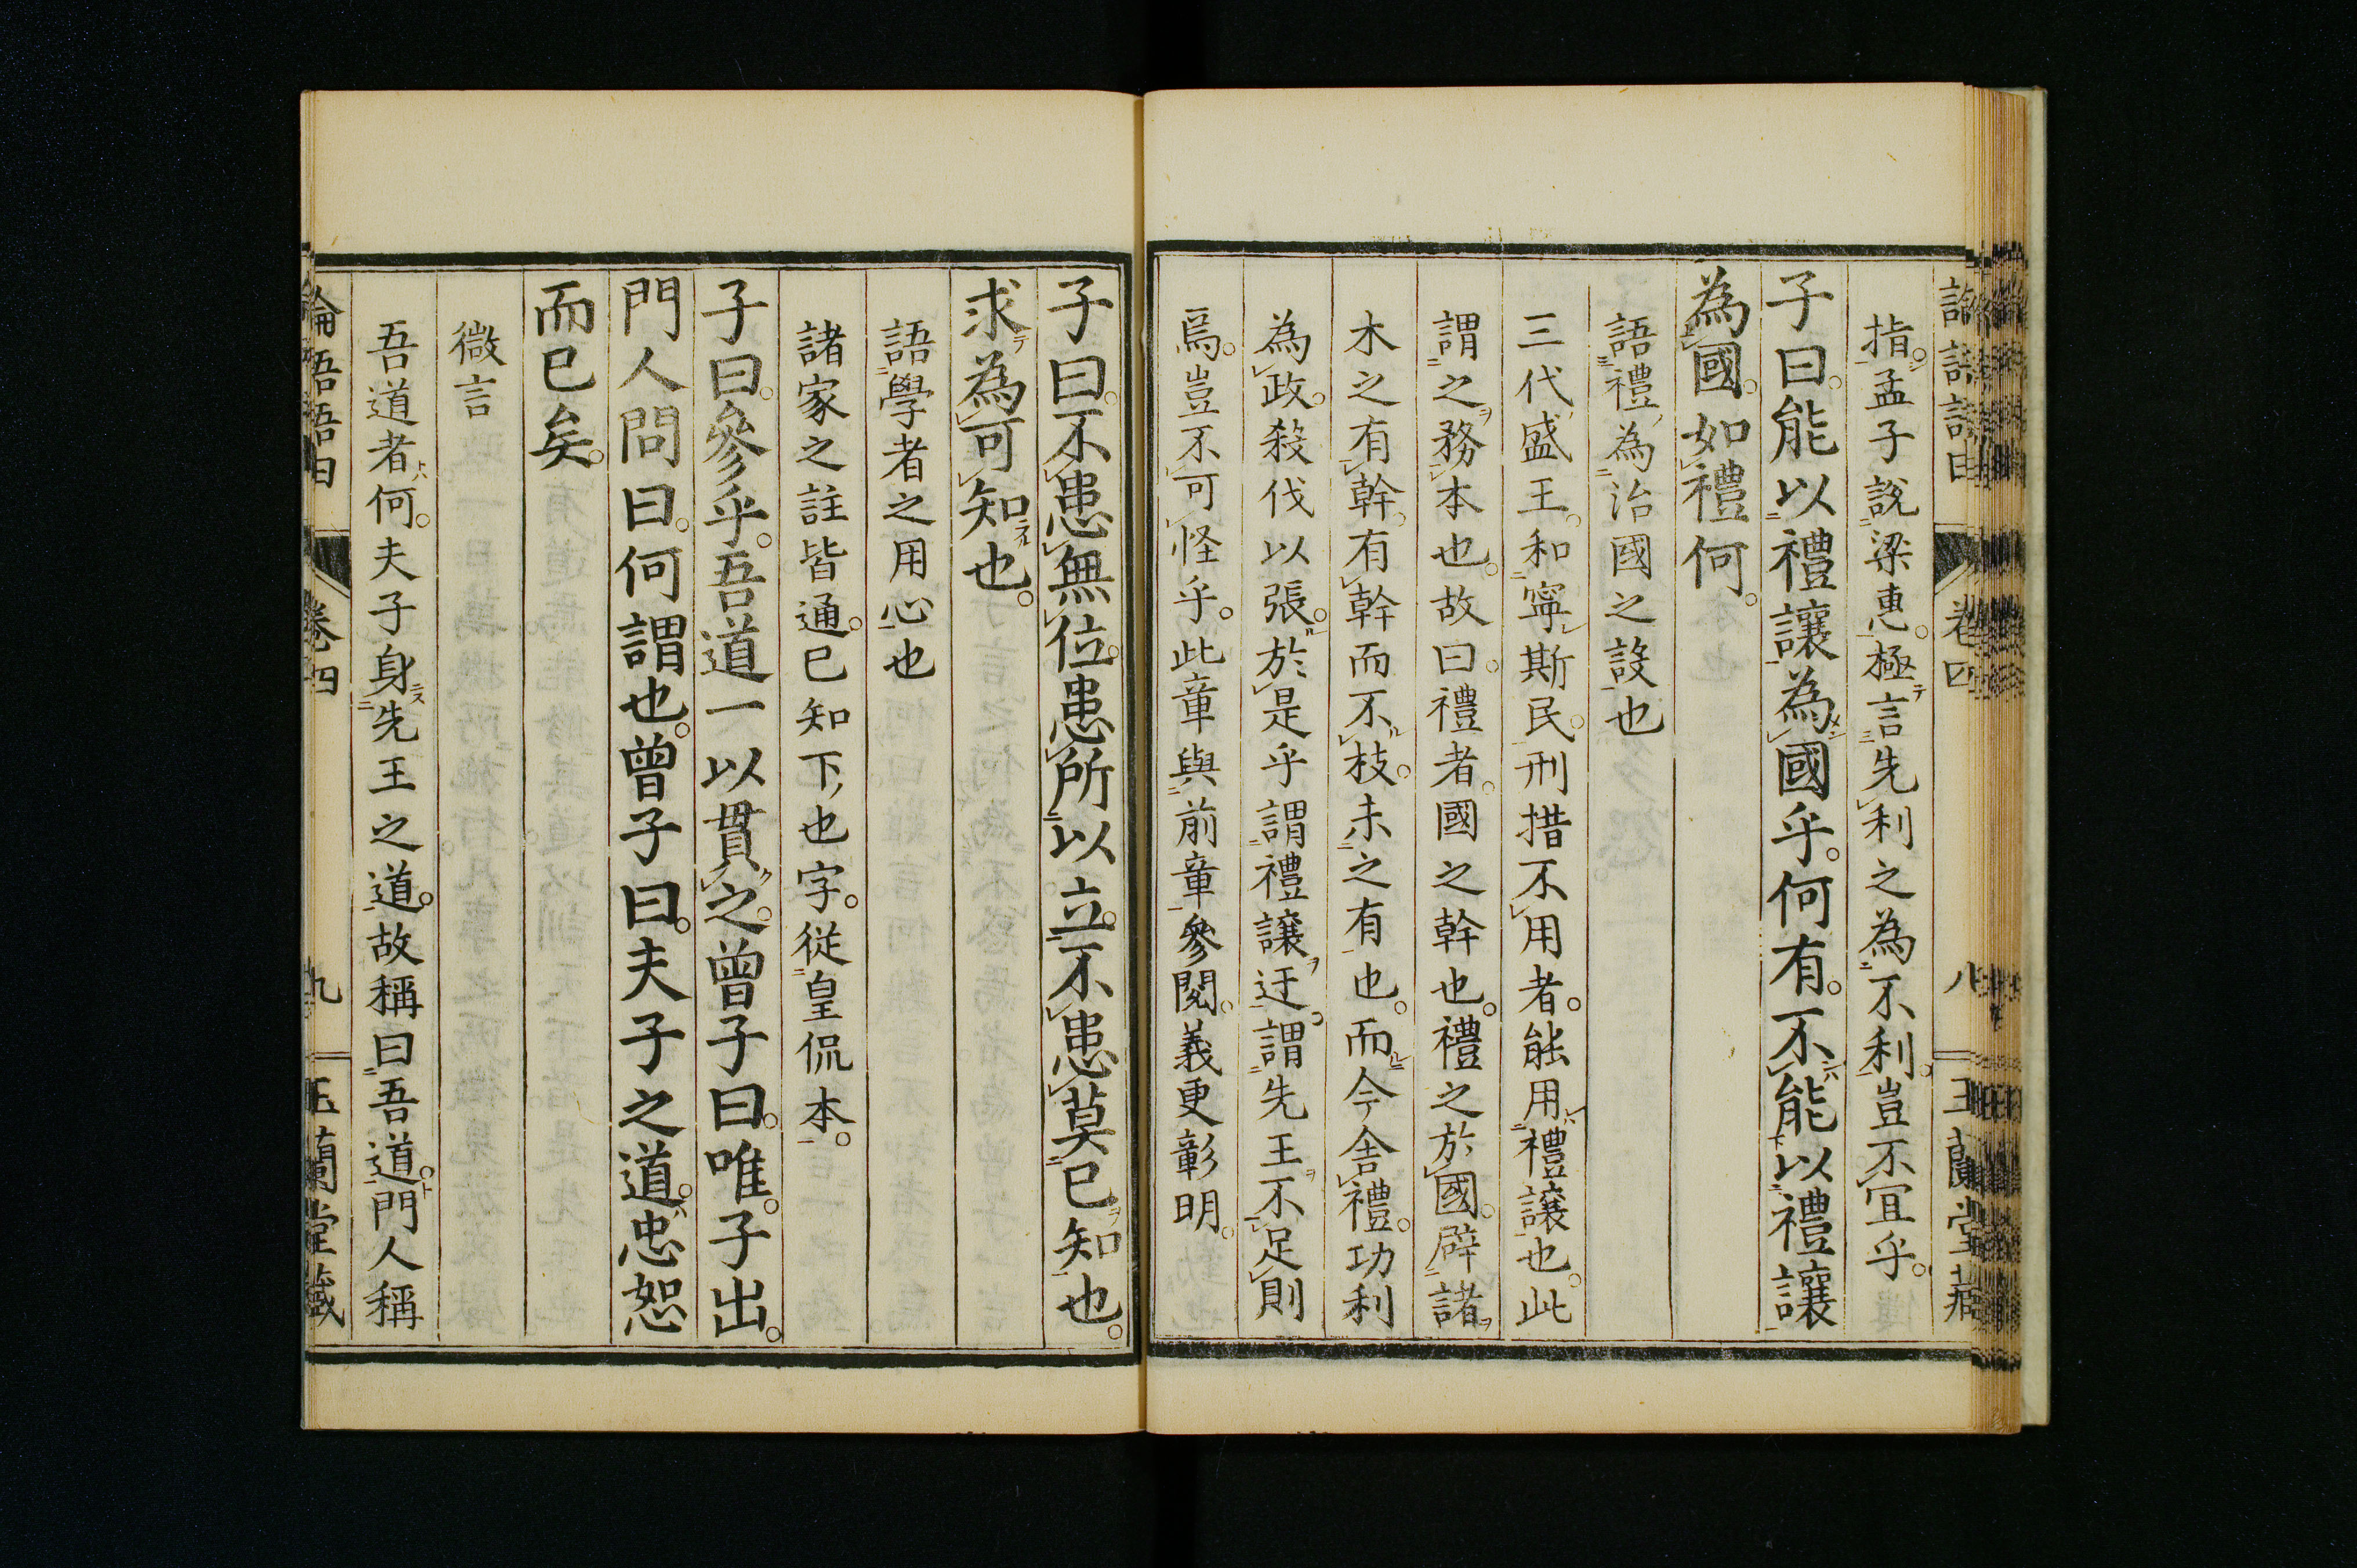 指。孟子說梁惠。極言先利之為不利。豈不宜乎。
子曰。能以禮讓為國乎。何有。不能以禮讓
為國。如禮何。
語禮為治國之設也
三代盛王。和寧斯民。刑措不用者。能用禮讓也。此
謂之務本也。故曰。禮者。國之幹也。禮之於國。辟諸
木之有幹。有幹而不枝。未之有也。而今舍禮。功利
為政。殺伐以張。於是乎謂禮讓迂。謂先王不足則
焉。豈不可怪乎。此章與前章參閱。義更彰明。
子曰。不患無位。患所以立。不患莫已知也。
求為可知也。
語學者之用心也
諸家之註皆通。已知下也字。從皇侃本。
子曰。參乎。吾道一以貫之。曾子曰。唯。子出。
門人問曰。何謂也。曾子曰。夫子之道。忠恕
而已矣。
微言
吾道者何。夫子身先王之道。故稱曰吾道。門人稱
卷四 九 玉蘭堂藏